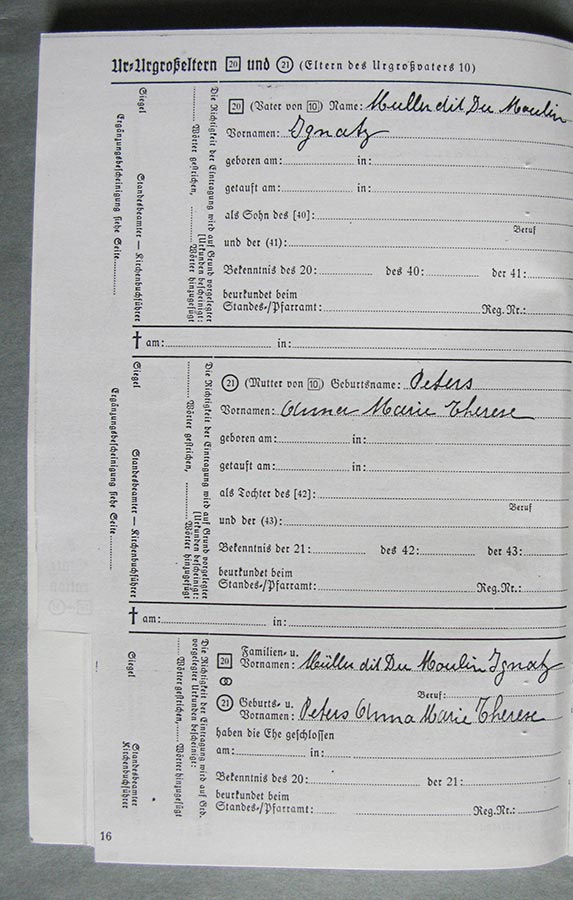 Ur-Urgroßeltern 20 und 21 (Eltern des Urgroßvaters 10)
Ergänzungsbescheinigung siehe Seite
Siegel Standesbeamter — Kirchenbuchführer
Die Richtigkeit der Eintragung wird auf Grund vorgelegter
Urkunden bescheinigt:
Wörter gestrichen, Wörter hinzugefügt
20 (Vater von 10) Name: Müller dit Du Moulin
Vornamen: Ignatz
geboren am: in:
getauft am: in:
als Sohn des [40]:
Beruf
und der (41):
Bekenntnis des 20: des 40: der 41:
beurkundet beim
Standes-/Pfarramt: Reg.Nr.:
† am: in:
Ergänzungsbescheinigung siehe Seite
Siegel Standesbeamter — Kirchenbuchführer
Die Richtigkeit der Eintragung wird auf Grund vorgelegter
Urkunden bescheinigt:
Wörter gestrichen, Wörter hinzugefügt
21 (Mutter von 10) Geburtsname: Peters
Vornamen: Anna Marie Therese
geboren am: in:
getauft am: in:
als Tochter des [42]:
Beruf
und der (43):
Bekenntnis der 21: des 42: der 43:
beurkundet beim
Standes-/Pfarramt: Reg.Nr.:
† am: in:
Siegel Standesbeamter
Kirchenbuchführer
Die Richtigkeit der Eintragung wird auf Grd.
vorgelegter Urkunden bescheinigt:
Wörter gestrichen, Wörter hinzugefügt
20 Familien- u.
Vornamen: Müller dit Du Moulin Ignatz
Beruf:
21 Geburts- u.
Vornamen: Peters Anna Marie Therese
haben die Ehe geschlossen
am: in:
Bekenntnis des 20: der 21:
beurkundet beim
Standes-/Pfarramt: Reg.Nr.:
16